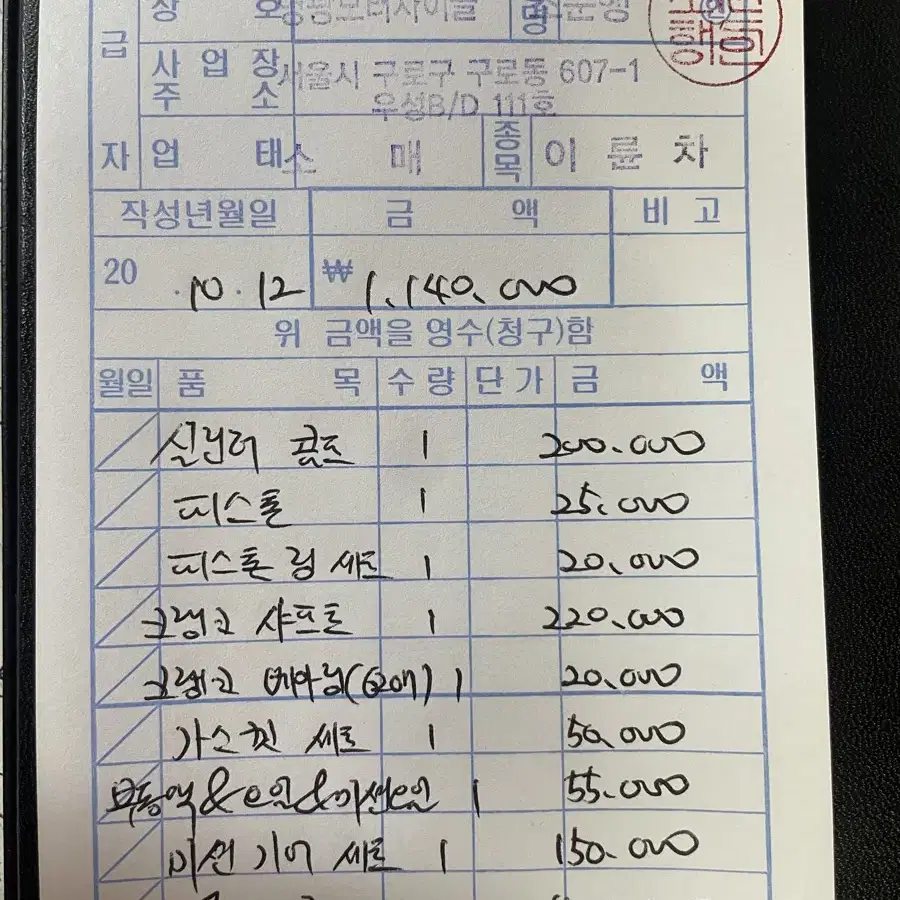 급
사업장 주소 서울시 구로구 구로동 607-1
우성B/D 111호
자 업 태 소 매 종목 이 륜 차
작성년월일 금 액 비 고
20 .10.12 ₩ 1,140,000
위 금액을 영수(청구)함
월일 품 목 수 량 단 가 금 액
실린더 1 200.000
피스톤 1 25.000
피스톤 링 세트 1 20.000
크랭크 샤프트 1 220.000
크랭크 베아링( ) 1 20.000
가스켓 세트 1 50.000
부동액&오일&미션오일 1 55.000
미션 기어 세트 1 150.000